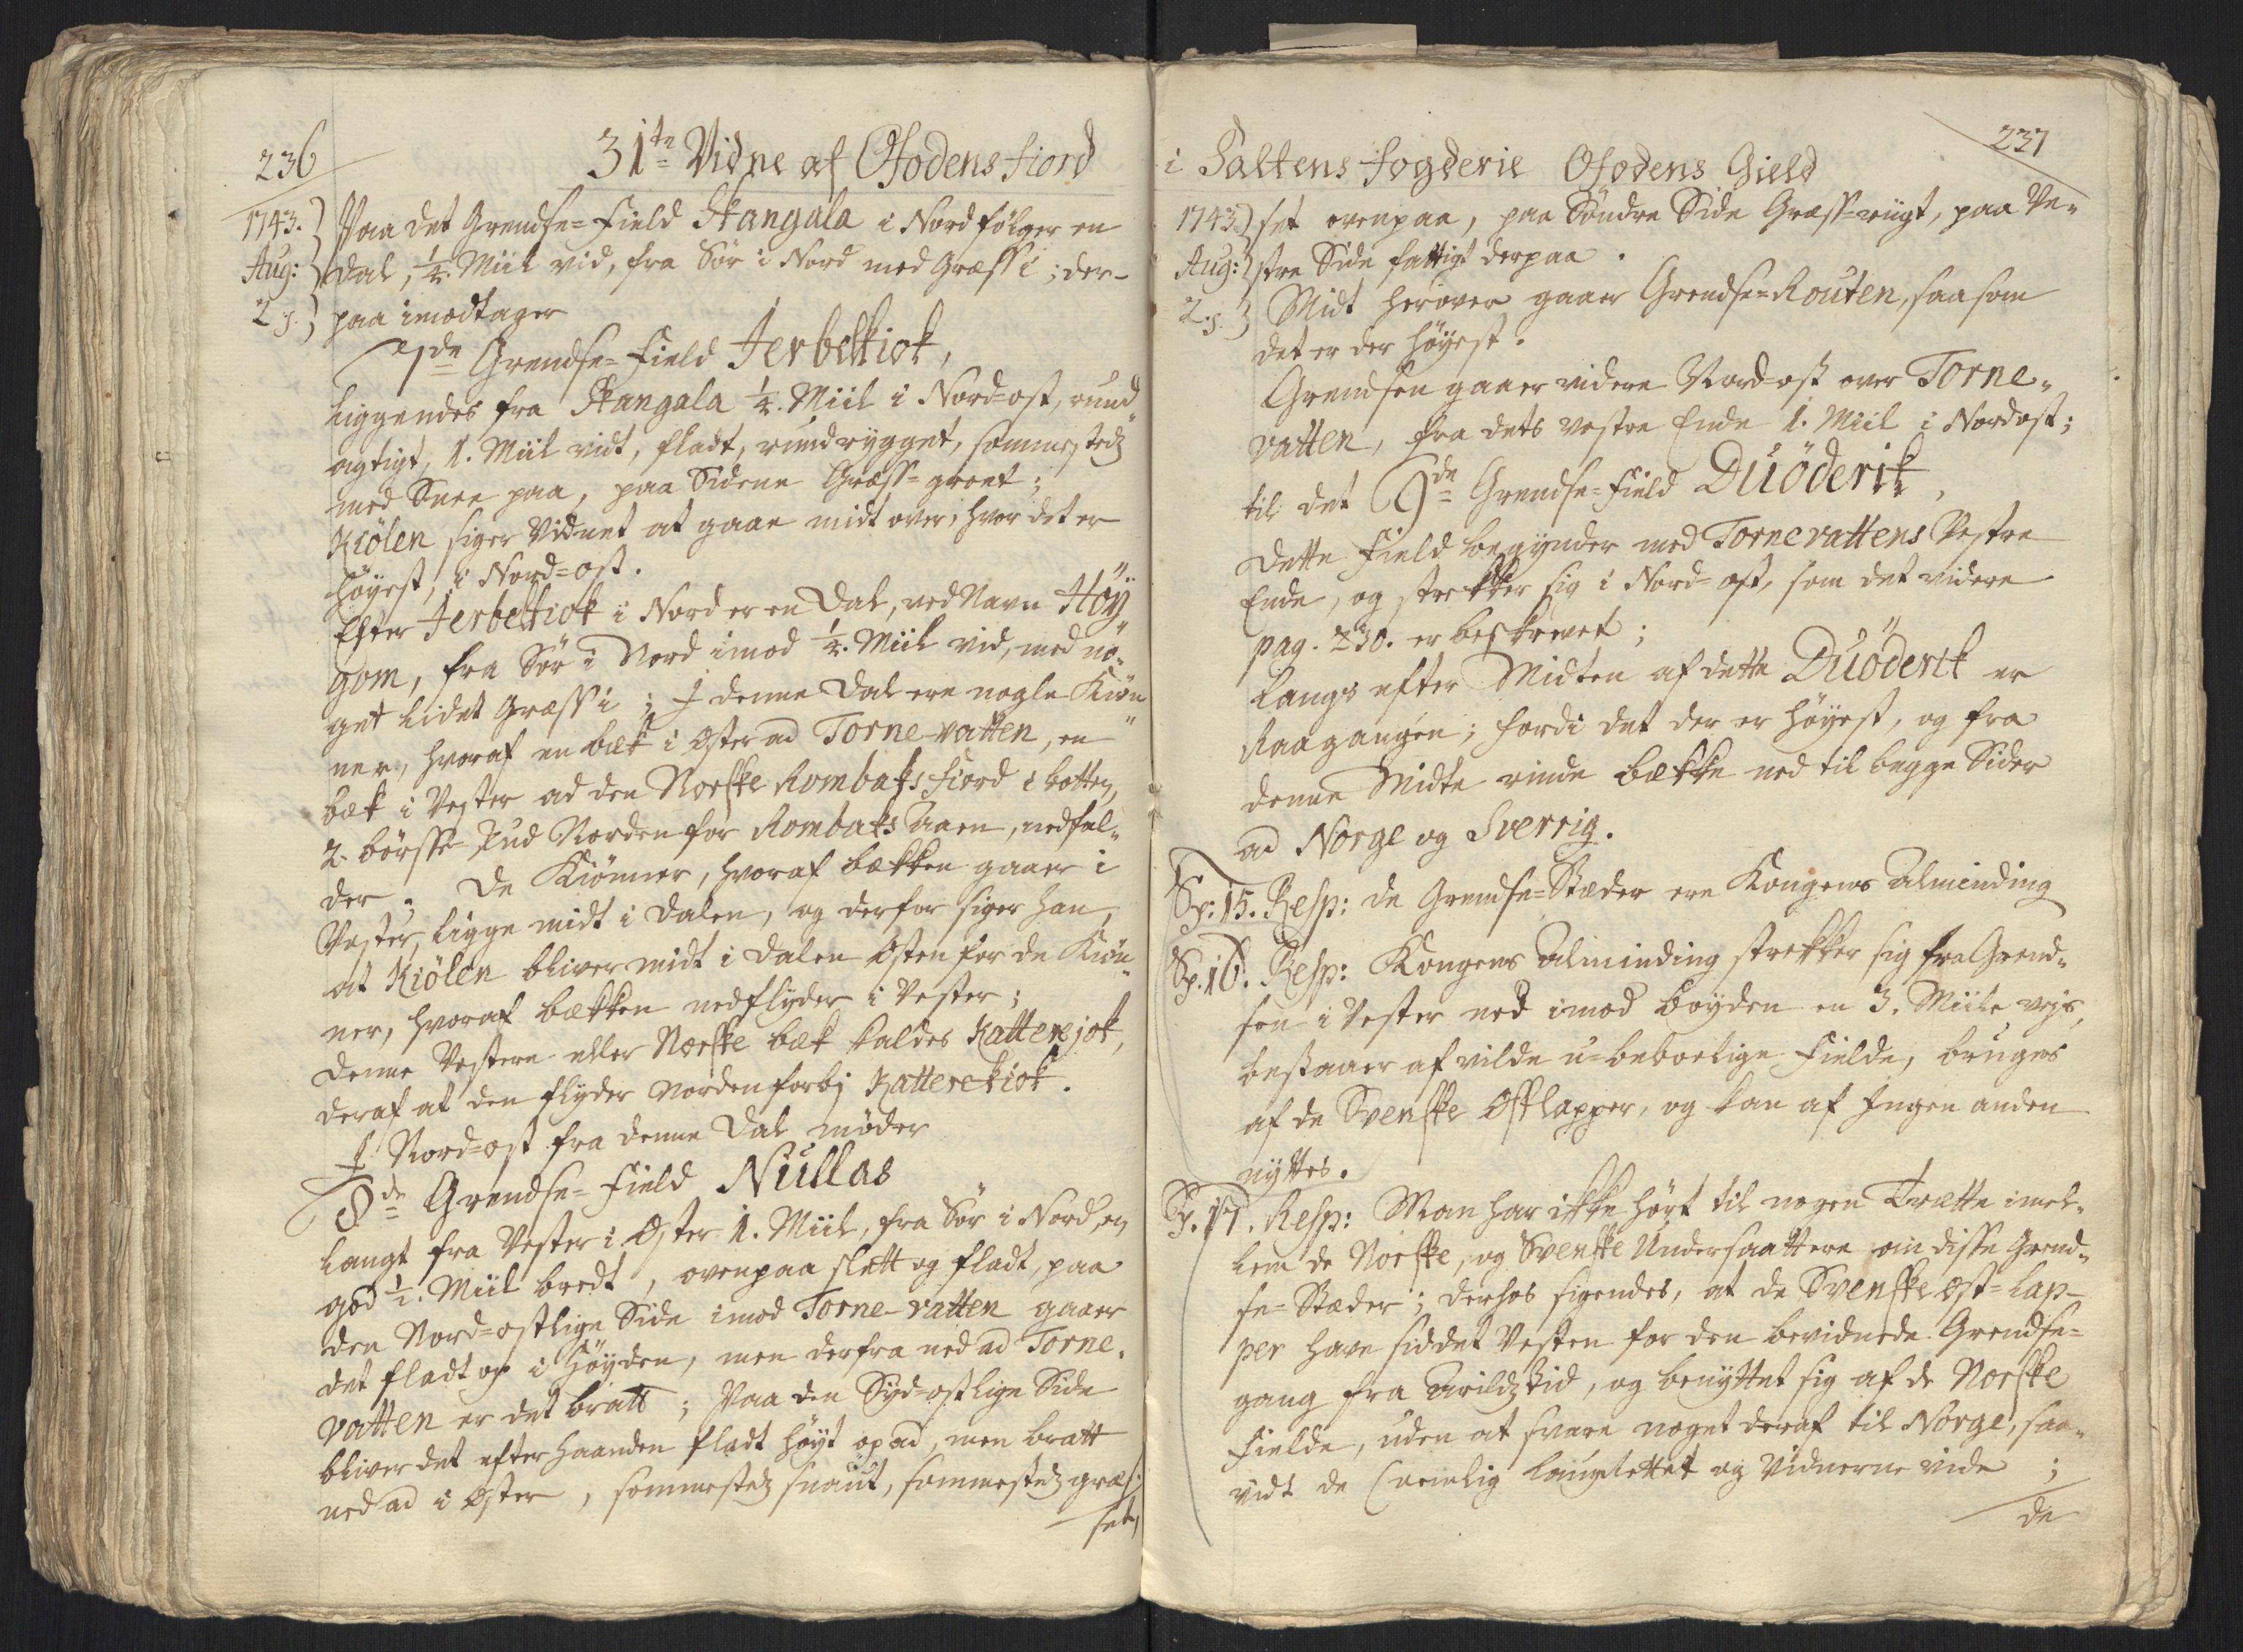 236
31te Vidne af Ofodens fiord
1743.
Aug:
2 s.
Paa det Grendse=Field Skangala i Nord følger en
Dal, ¼. Miil vid, fra Sør i Nord med Græss i; der-
paa imodtager
7de Grendse=Field Jerbelkiok,
liggendes fra Skangala ¼. Miil i Nord=ost, rund-
agtigt, 1. Miil vidt, fladt, rundrygget, sommestedz
med Snee paa, paa Siderne Græss=groet;
Kiölen siger Vidnet at gaae midt over, hvor det er
høyest, i Nord=ost.
Efter Jerbelkiok i Nord er en Dal, ved Navn Höÿ-
gom, fra Sør i Nord imod ¼. Miil vid, med no-
get lidet Græss i; I denne Dal ere nogle Kiön-
ner, hvoraf en bæk i Øster ad Torne-vatten, en
bæk i Vester ad den Norske Rombaks fiord i botten,
2. börsse=skud Norden for Rombaks Aaen, nedfal-
der. De Kiönner, hvoraf bækken gaaer i
Vester, ligge midt i Dalen, og derfor siger han,
at Kiölen bliver midt i Dalen Østen for de Kiön-
ner, hvoraf bækken nedflyder i Vester;
Denne Vestere eller Norske bæk kaldes Katterejok,
deraf at den flyder Norden forbj Katterekiok.
I Nord=ost fra denne Dal møder
8de Grendse=Field Niullas
langt fra Vester i Øster 1. Miil, fra Sør i Nord en
god ½. Miil bredt, ovenpaa slætt og fladt, paa
den Nord=ostlige Side imod Torne-vatten gaaer
det fladt op i Høyden, men derfra ned ad Torne-
vatten er det bratt; Paa den Syd=ostlige Side
bliver det efterhaanden fladt høyt op ad, men bratt
ned ad i Øster, sommestedz snaut, sommestedz græs-
set,
237
i Saltens fogderie Ofodens Gield
1743.
Aug:
2. s.
set ovenpaa, paa Søndre Side Græss=rügt, paa Ve-
stre Side fattigt derpaa.
Midt herover gaaer Grendse=Routen, saasom
det er der høyest.
Grendsen gaaer videre Nord=ost over Torne-
vatten, fra dets vestre Ende 1. Miil i Nordost;
til det 9de Grendse=Field Duöderik,
Dette Field begynder med Tornevattens Vestre
Ende, og strekker sig i Nord=ost, som det videre
pag. 230. er beskrevet;
Langs efter Midten af dette Duöderik er
Raagangen; fordi det der er høyest, og fra
denne Midte rinde bække ned til begge Sider
ad Norge og Sverrig.
Sp: 15. Resp: de Grendse=Stæder ere Kongens Alminding
Sp. 16. Resp: Kongens Alminding strekker sig fra Grend-
sen i Vester ned imod boyden en 3. Miile vejs,
bestaaer af vilde u=beboelige Fielde, bruges
af de Svenske Ostlapper, og kan af Ingen anden
nyttes.
Sp. 17. Resp: Man har ikke hørt til nogen Trætte imel-
lem de Norske, og Svenske Undersaattere om disse Grend-
se=Stæder; derhos sigendes, at de Svenske Øst=Lap-
per have siddet Vesten for den bevidnede Grendse=
gang fra Arildztid, og benyttet sig af de Norske
Fielde, uden at svare noget deraf til Norge, saa-
vidt de (nemlig Laugrettet og Vidnerne vide;
de